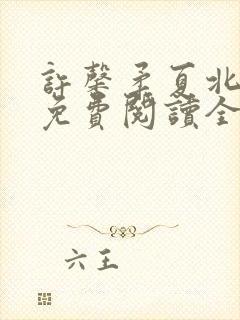 許馨矛夏北
免費閱讀全
六王